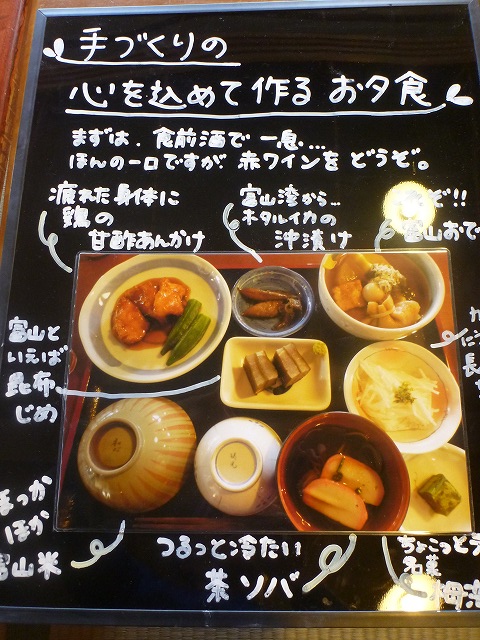 手づくりの
心を込めて作る お夕食
まずは、食前酒で 一息…
ほんの一口ですが 赤ワインを どうぞ。
疲れた身体に
鶏の
甘酢あんかけ
富山湾から…
ホタルイカの
沖漬け
ぞ!!
富山おで
富山と
いえば
昆布
じめ
長
ほっか
ほか
富山米
つるっと冷たい
茶ソバ
ちょこっと
名菓